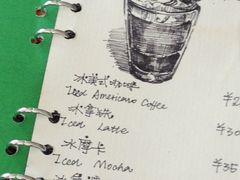 冰美式咖啡
Iced Americano Coffee ¥2
冰拿铁
Iced Latte ¥30
冰摩卡
Iced Mocha ¥35